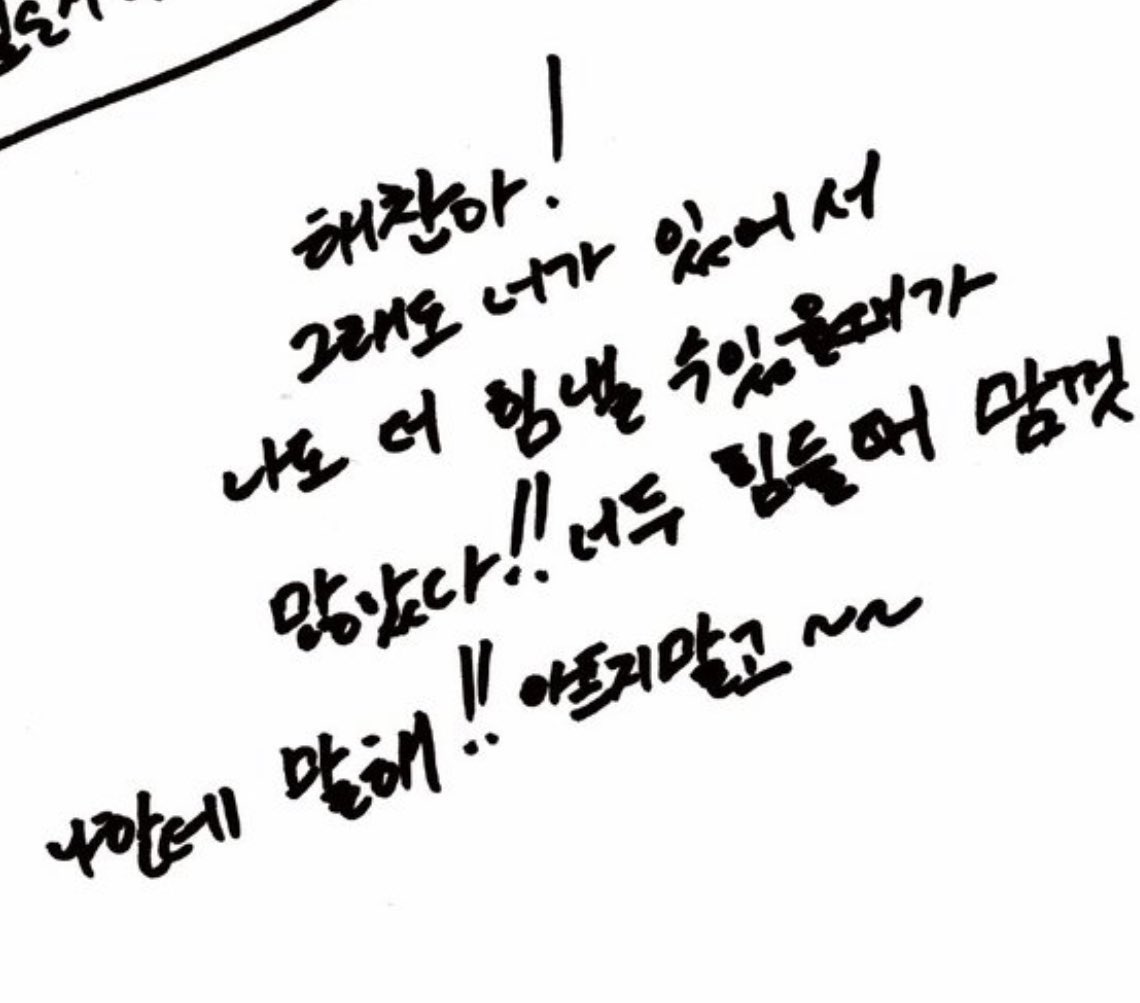 해찬아!
그래도 너가 있어서
나도 더 힘낼 수있을때가
많았다!! 너두 힘들때 맘껏
나한테 말해!! 아프지말고~~